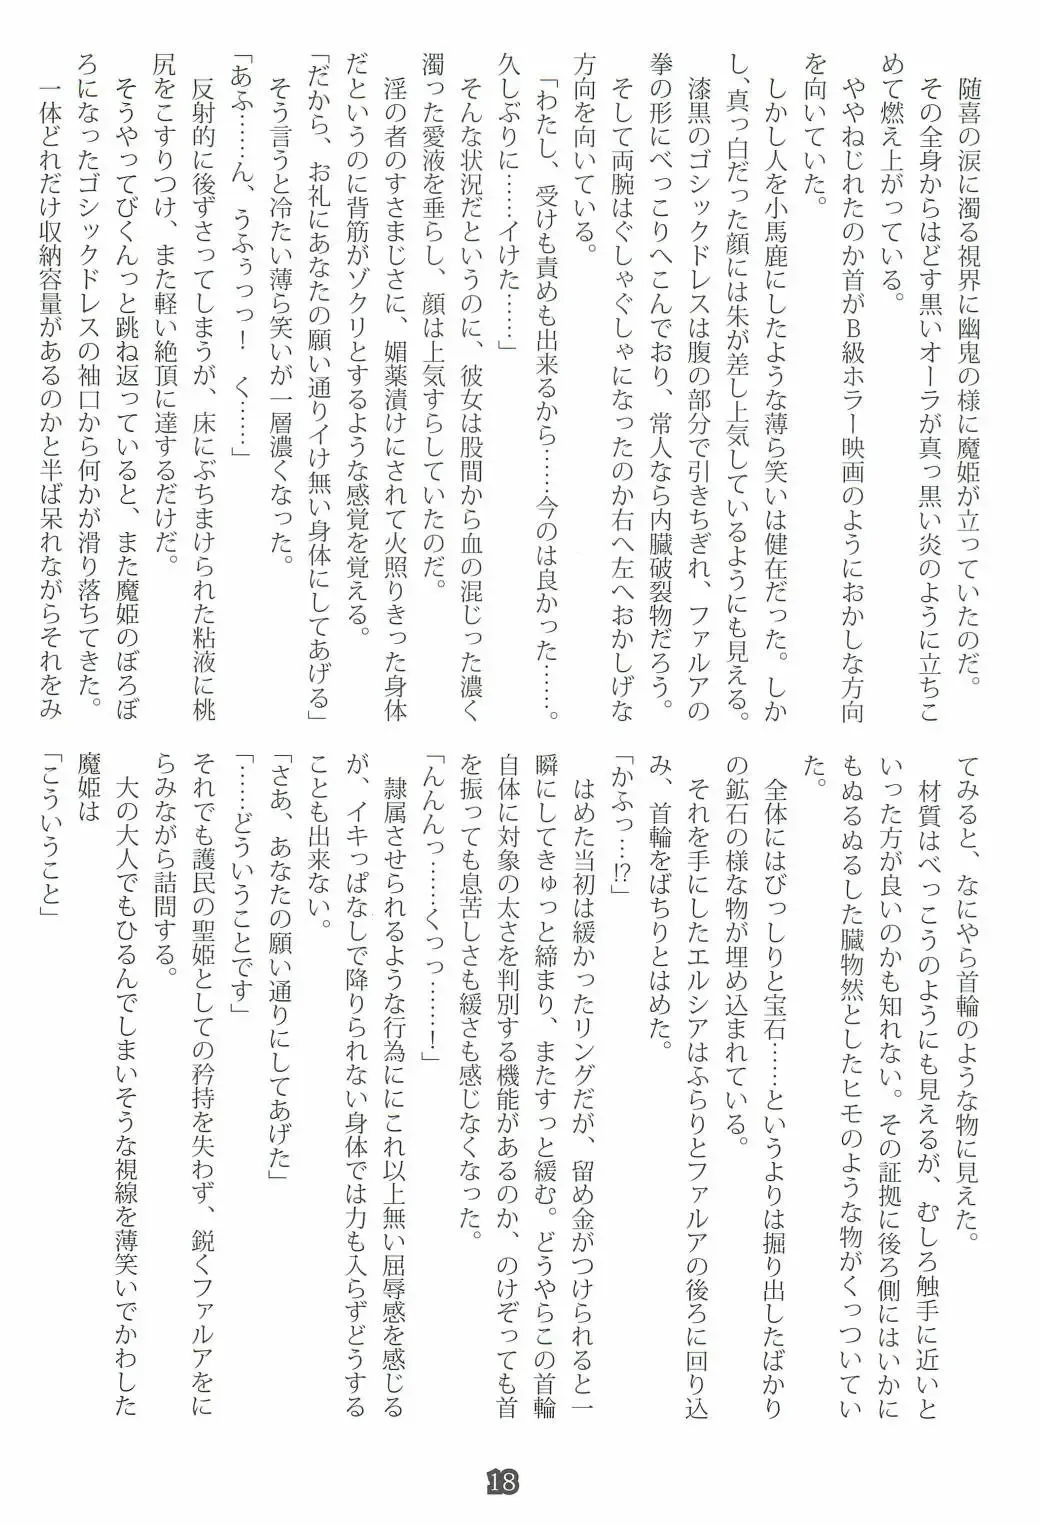 随喜の涙に濁る視界に幽鬼の様に魔姫が立っていたのだ。
その全身からはどす黒いオーラが真っ黒い炎のように立ちこ
めて燃え上がっている。
ややねじれたのか首がB級ホラー映画のようにおかしな方向
を向いていた。
しかし人を小馬鹿にしたような薄ら笑いは健在だった。しか
し、真っ白だった顔には朱が差し上気しているようにも見える。
漆黒のゴシックドレスは腹の部分で引きちぎれ、ファルアの
拳の形にべっこりへこんでおり、常人なら内臓破裂物だろう。
そして両腕はぐしゃぐしゃになったのか右へ左へおかしげな
方向を向いている。
「わたし、受けも責めも出来るから……今のは良かった……。
久しぶりに……イけた……」
そんな状況だというのに、彼女は股間から血の混じった濃く
濁った愛液を垂らし、顔は上気すらしていたのだ。
淫の者のすさまじさに、媚薬漬けにされて火照りきった身体
だというのに背筋がゾクリとするような感覚を覚える。
「だから、お礼にあなたの願い通りイけ無い身体にしてあげる」
そう言うと冷たい薄ら笑いが一層濃くなった。
「あふ……ん、うふぅっっ！　く……」
反射的に後ずさってしまうが、床にぶちまけられた粘液に桃
尻をこすりつけ、また軽い絶頂に達するだけだ。
そうやってびくんっと跳ね返っていると、また魔姫のぼろぼ
ろになったゴシックドレスの袖口から何かが滑り落ちてきた。
一体どれだけ収納容量があるのかと半ば呆れながらそれをみ
てみると、なにやら首輪のような物に見えた。
材質はべっこうのようにも見えるが、むしろ触手に近いと
いった方が良いのかも知れない。その証拠に後ろ側にはいかに
もぬるぬるした臓物然としたヒモのような物がくっついてい
た。
全体にはびっしりと宝石……というよりは掘り出したばかり
の鉱石の様な物が埋め込まれている。
それを手にしたエルシアはふらりとファルアの後ろに回り込
み、首輪をばちりとはめた。
「かふっ…!?」
はめた当初は緩かったリングだが、留め金がつけられると一
瞬にしてきゅっと締まり、またすっと緩む。どうやらこの首輪
自体に対象の太さを判別する機能があるのか、のけぞっても首
を振っても息苦しさも緩さも感じなくなった。
「んんんっ……くっっ……！」
隷属させられるような行為ににこれ以上無い屈辱感を感じる
が、イキっぱなしで降りられない身体では力も入らずどうする
ことも出来ない。
「さあ、あなたの願い通りにしてあげた」
「……どういうことです」
それでも護民の聖姫としての矜持を失わず、鋭くファルアをに
らみながら詰問する。
大の大人でもひるんでしまいそうな視線を薄笑いでかわした
魔姫は
「こういうこと」
18